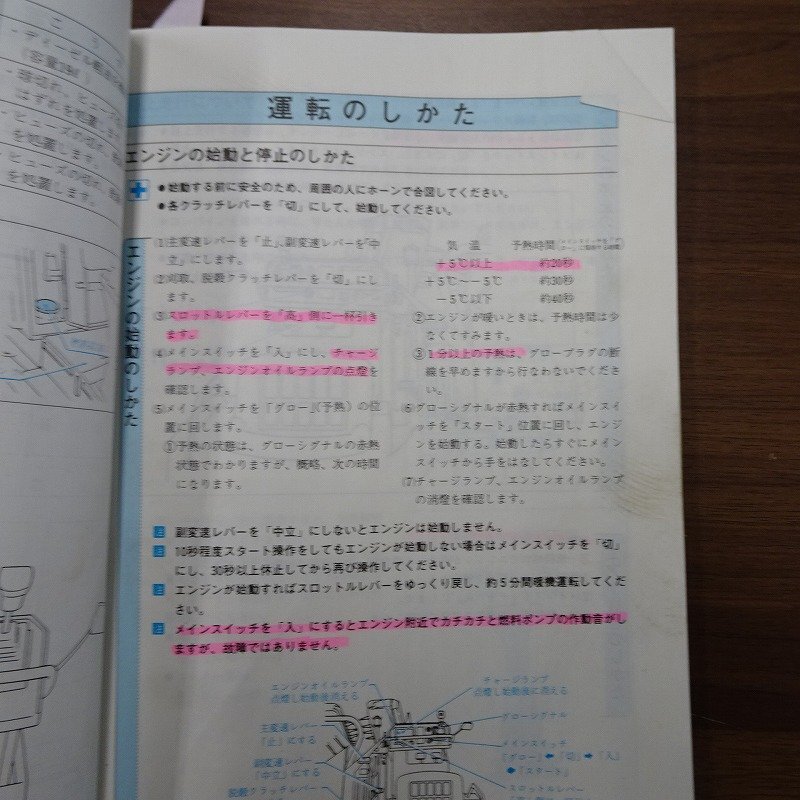 ディーゼル
(容量19ℓ)
端切れ、ヒューズ
はずれを処置
ヒューズの切れ、
を処置します。
ヒューズの切れ、
を処置します。
運転のしかた
エンジンの始動と停止のしかた
●始動する前に安全のため、周囲の人にホーンで合図してください。
●各クラッチレバーを「切」にして、始動してください。
エンジンの始動のしかた
(1)主変速レバーを「止」、副変速レバーを「中
立」にします。
(2)刈取、脱穀クラッチレバーを「切」にし
ます。
(3)スロットルレバーを「高」側に一杯引き
ます。
(4)メインスイッチを「入」にし、チャージ
ランプ、エンジンオイルランプの点燈を
確認します。
(5)メインスイッチを「グロー」(予熱)の位
置に回します。
①予熱の状態は、グローシグナルの赤熱
状態でわかりますが、概略、次の時間
になります。
気温 予熱時間
+5℃以上 約20秒
+5℃〜−5℃ 約30秒
−5℃以下 約40秒
②エンジンが暖いときは、予熱時間は少
なくてすみます。
③1分以上の予熱は、グロープラグの断
線を早めますから行なわないでくださ
い。
(6)グローシグナルが赤熱すればメインスイ
ッチを「スタート」位置に回し、エンジ
ンを始動する。始動したらすぐにメイン
スイッチから手をはなしてください。
(7)チャージランプ、エンジンオイルランプ
の消燈を確認します。
注 副変速レバーを「中立」にしないとエンジンは始動しません。
注 10秒程度スタート操作をしてもエンジンが始動しない場合はメインスイッチを「切」
にし、30秒以上休止してから再び操作してください。
注 エンジンが始動すればスロットルレバーをゆっくり戻し、約5分間暖機運転してくだ
さい。
注 メインスイッチを「入」にするとエンジン附近でカチカチと燃料ポンプの作動音がし
ますが、故障ではありません。
エンジンオイルランプ
点燈し始動後消える
チャージランプ
点燈し始動後に消える
主変速レバー
「止」にする
グローシグナル
副変速レバー
「中立」にする
メインスイッチ
「グロー」⬅「切」➡「入」
➡「スタート」
脱穀クラッチレバー
スロットルレバー